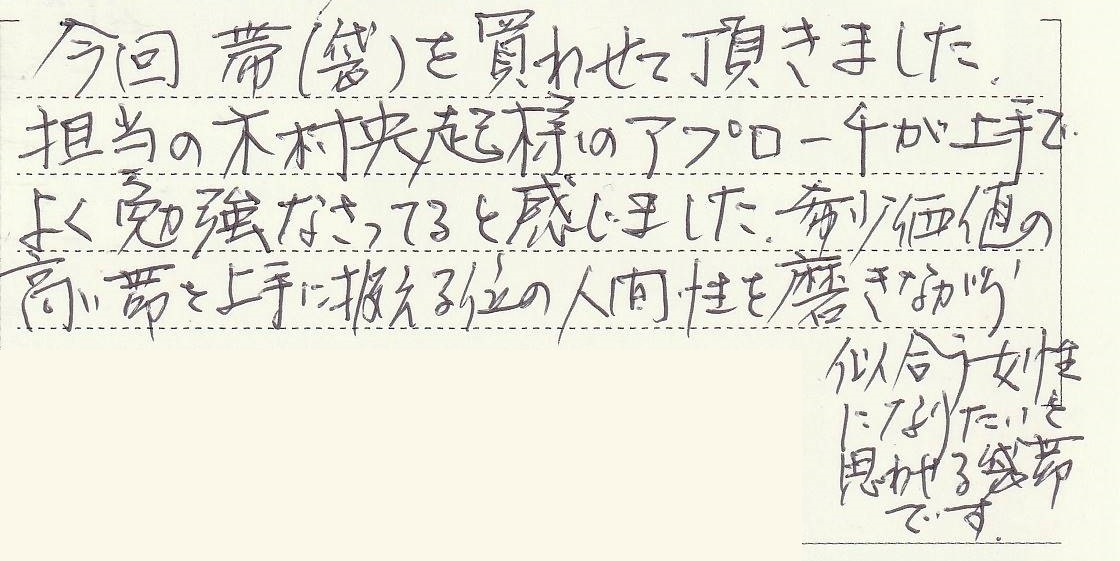 今回 帯(袋)を買わせて頂きました.
担当の木村央起様のアプローチが上手で
よく勉強なさってると感じました.希少価値の
高い帯を上手に扱える位の人間性を磨きながら
似合う女性
になりたいを
思わせる袋帯
です.